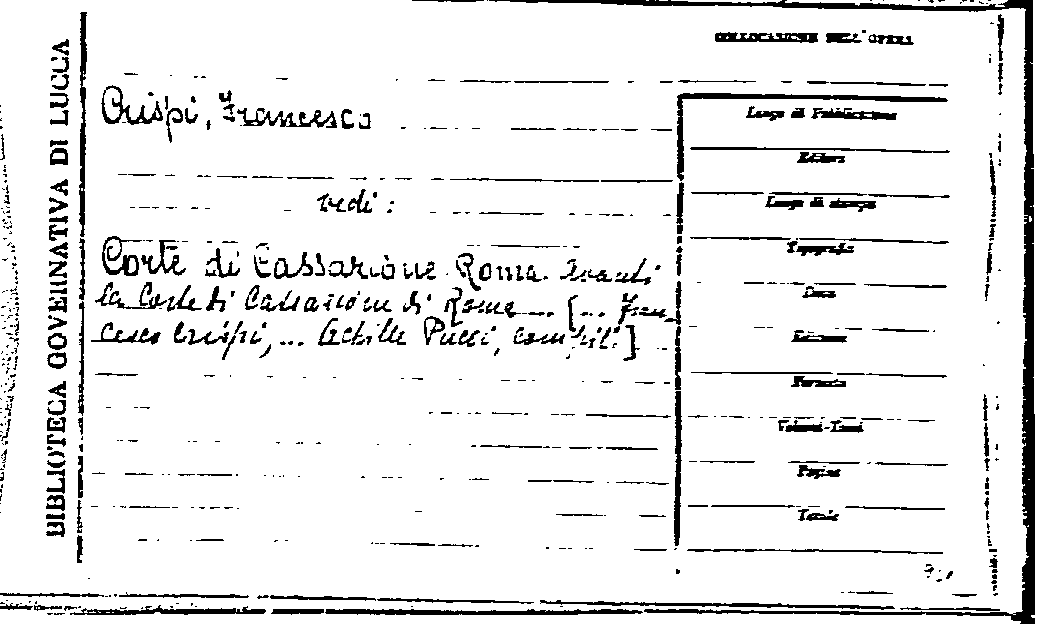 BIBLIOTECA GOVERNATIVA DI LUCCA
COLLOCAZIONE DELL'OPERA
Crispi, Francesco
vedi:
Corte di Cassazione Roma. Avanti
la Corte di Cassazione di Roma ... [... Fran-
cesco Crispi, ... Achille Pucci, compil.]
Luogo di Pubblicazione
Editore
Luogo di stampa
Tipografia
Data
Edizione
Formato
Volumi-Tomi
Pagine
Tavole